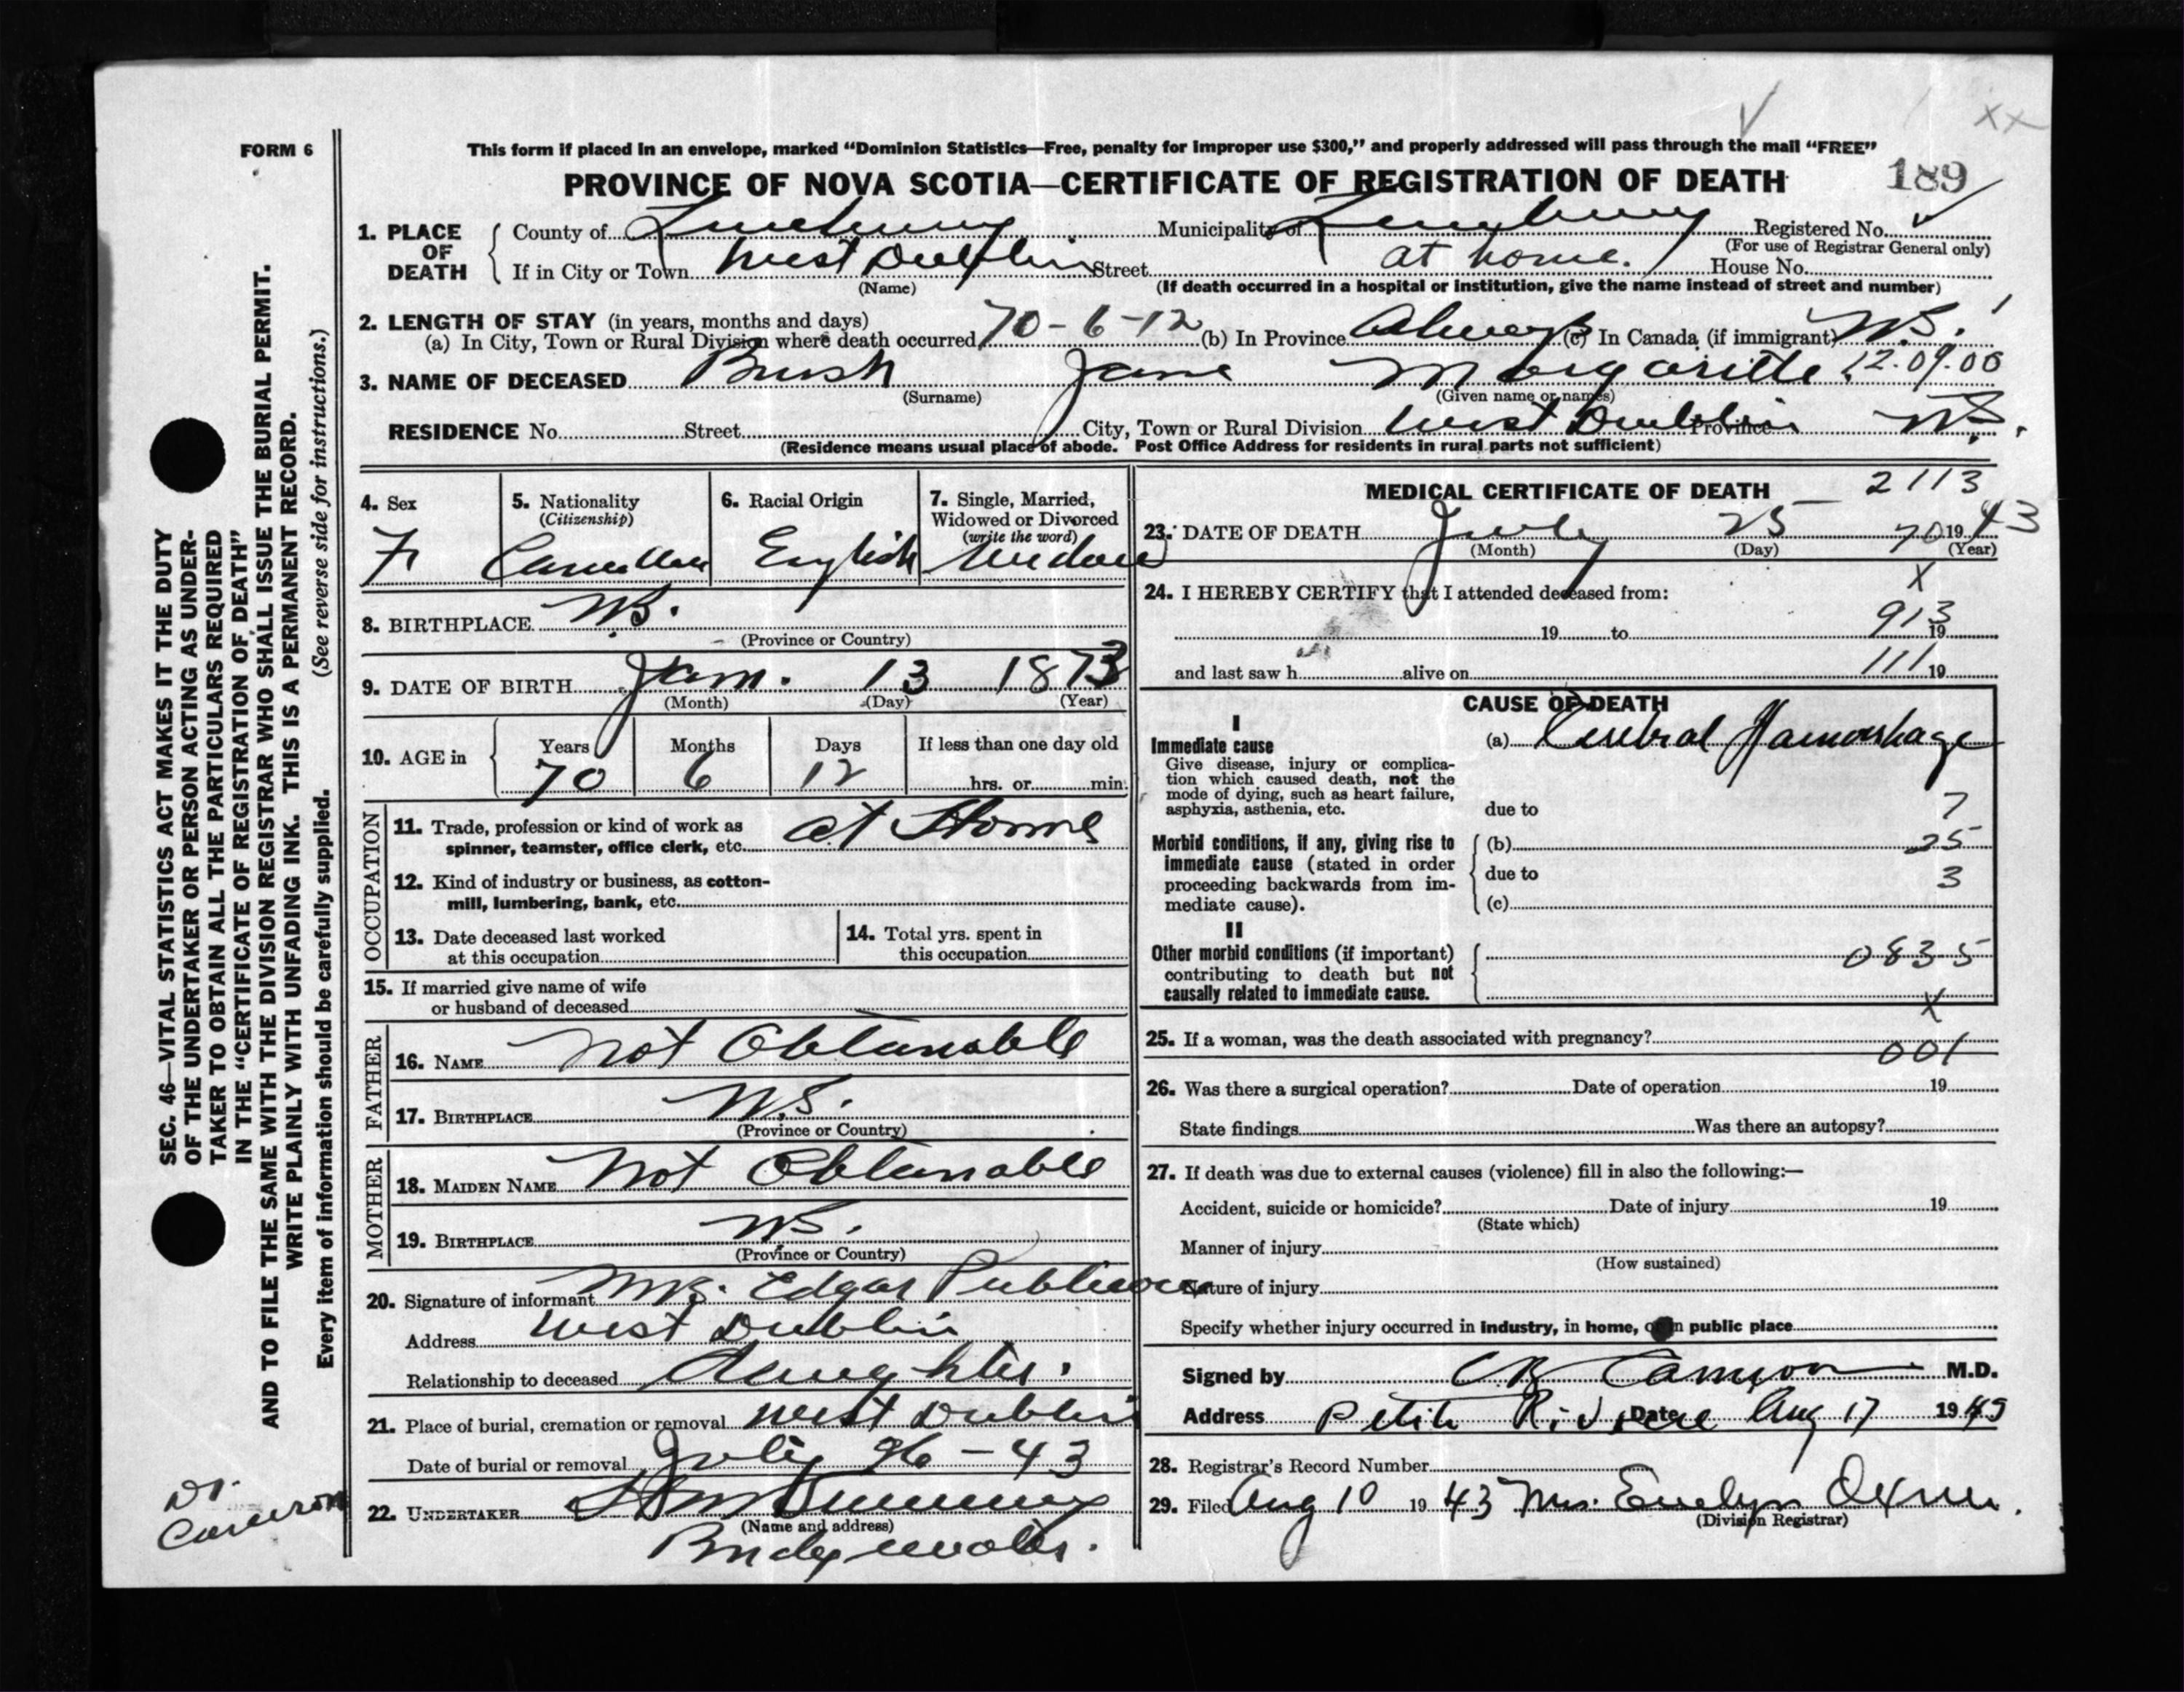 FORM 6
This form if placed in an envelope, marked “Dominion Statistics—Free, penalty for improper use $300,” and properly addressed will pass through the mail “FREE”
PROVINCE OF NOVA SCOTIA—CERTIFICATE OF REGISTRATION OF DEATH 189
1. PLACE OF DEATH County of Lunenburg Municipality of Lunenburg Registered No.
(For use of Registrar General only)
If in City or Town West Dublin Street at home. House No.
(Name) (If death occurred in a hospital or institution, give the name instead of street and number)
2. LENGTH OF STAY (in years, months and days)
(a) In City, Town or Rural Division where death occurred 70-6-12 (b) In Province Always (c) In Canada (if immigrant) N.S.
3. NAME OF DECEASED Bush Jane Margaritte 12.09.00
(Surname) (Given name or names)
RESIDENCE No. Street City, Town or Rural Division West Dublin Province N.S.
(Residence means usual place of abode. Post Office Address for residents in rural parts not sufficient)
4. Sex 5. Nationality 6. Racial Origin 7. Single, Married,
(Citizenship) Widowed or Divorced
(write the word)
F Canadian English Widow
8. BIRTHPLACE N.S.
(Province or Country)
9. DATE OF BIRTH Jan. 13 1873
(Month) (Day) (Year)
10. AGE in Years Months Days If less than one day old
70 6 12 hrs. or min.
OCCUPATION
11. Trade, profession or kind of work as
spinner, teamster, office clerk, etc. at Home
12. Kind of industry or business, as cotton-
mill, lumbering, bank, etc.
13. Date deceased last worked 14. Total yrs. spent in
at this occupation this occupation
15. If married give name of wife
or husband of deceased
FATHER
16. NAME Not Obtanable
17. BIRTHPLACE N.S.
(Province or Country)
MOTHER
18. MAIDEN NAME Not Obtanable
19. BIRTHPLACE N.S.
(Province or Country)
20. Signature of informant Mrs. Edgar Publicover
Address West Dublin
Relationship to deceased daughter.
21. Place of burial, cremation or removal West Dublin
Date of burial or removal July 26-43
22. UNDERTAKER
(Name and address)
Bridgewater.
MEDICAL CERTIFICATE OF DEATH 2113
23. DATE OF DEATH July 25 70 1943
(Month) (Day) (Year)
24. I HEREBY CERTIFY that I attended deceased from: X
19 to 913 19
and last saw h alive on 111 19
CAUSE OF DEATH
I
Immediate cause (a) Cerebral Haemorrhage
Give disease, injury or complica-
tion which caused death, not the
mode of dying, such as heart failure,
asphyxia, asthenia, etc. due to 7
Morbid conditions, if any, giving rise to (b) 25
immediate cause (stated in order due to 3
proceeding backwards from im-
mediate cause). (c)
II
Other morbid conditions (if important) 0835
contributing to death but not
causally related to immediate cause. X
25. If a woman, was the death associated with pregnancy?
001
26. Was there a surgical operation? Date of operation 19
State findings Was there an autopsy?
27. If death was due to external causes (violence) fill in also the following:—
Accident, suicide or homicide? Date of injury 19
(State which)
Manner of injury
(How sustained)
Nature of injury
Specify whether injury occurred in industry, in home, or in public place
Signed by Cameron M.D.
Address Petite Riviere Date Aug 17 1943
28. Registrar’s Record Number
29. Filed Aug 10 1943 Mrs. Evelyn Oxner.
(Division Registrar)
SEC. 46—VITAL STATISTICS ACT MAKES IT THE DUTY
OF THE UNDERTAKER OR PERSON ACTING AS UNDER-
TAKER TO OBTAIN ALL THE PARTICULARS REQUIRED
IN THE “CERTIFICATE OF REGISTRATION OF DEATH”
AND TO FILE THE SAME WITH THE DIVISION REGISTRAR WHO SHALL ISSUE THE BURIAL PERMIT.
WRITE PLAINLY WITH UNFADING INK. THIS IS A PERMANENT RECORD.
Every item of information should be carefully supplied. (See reverse side for instructions.)
Dr.
Cameron